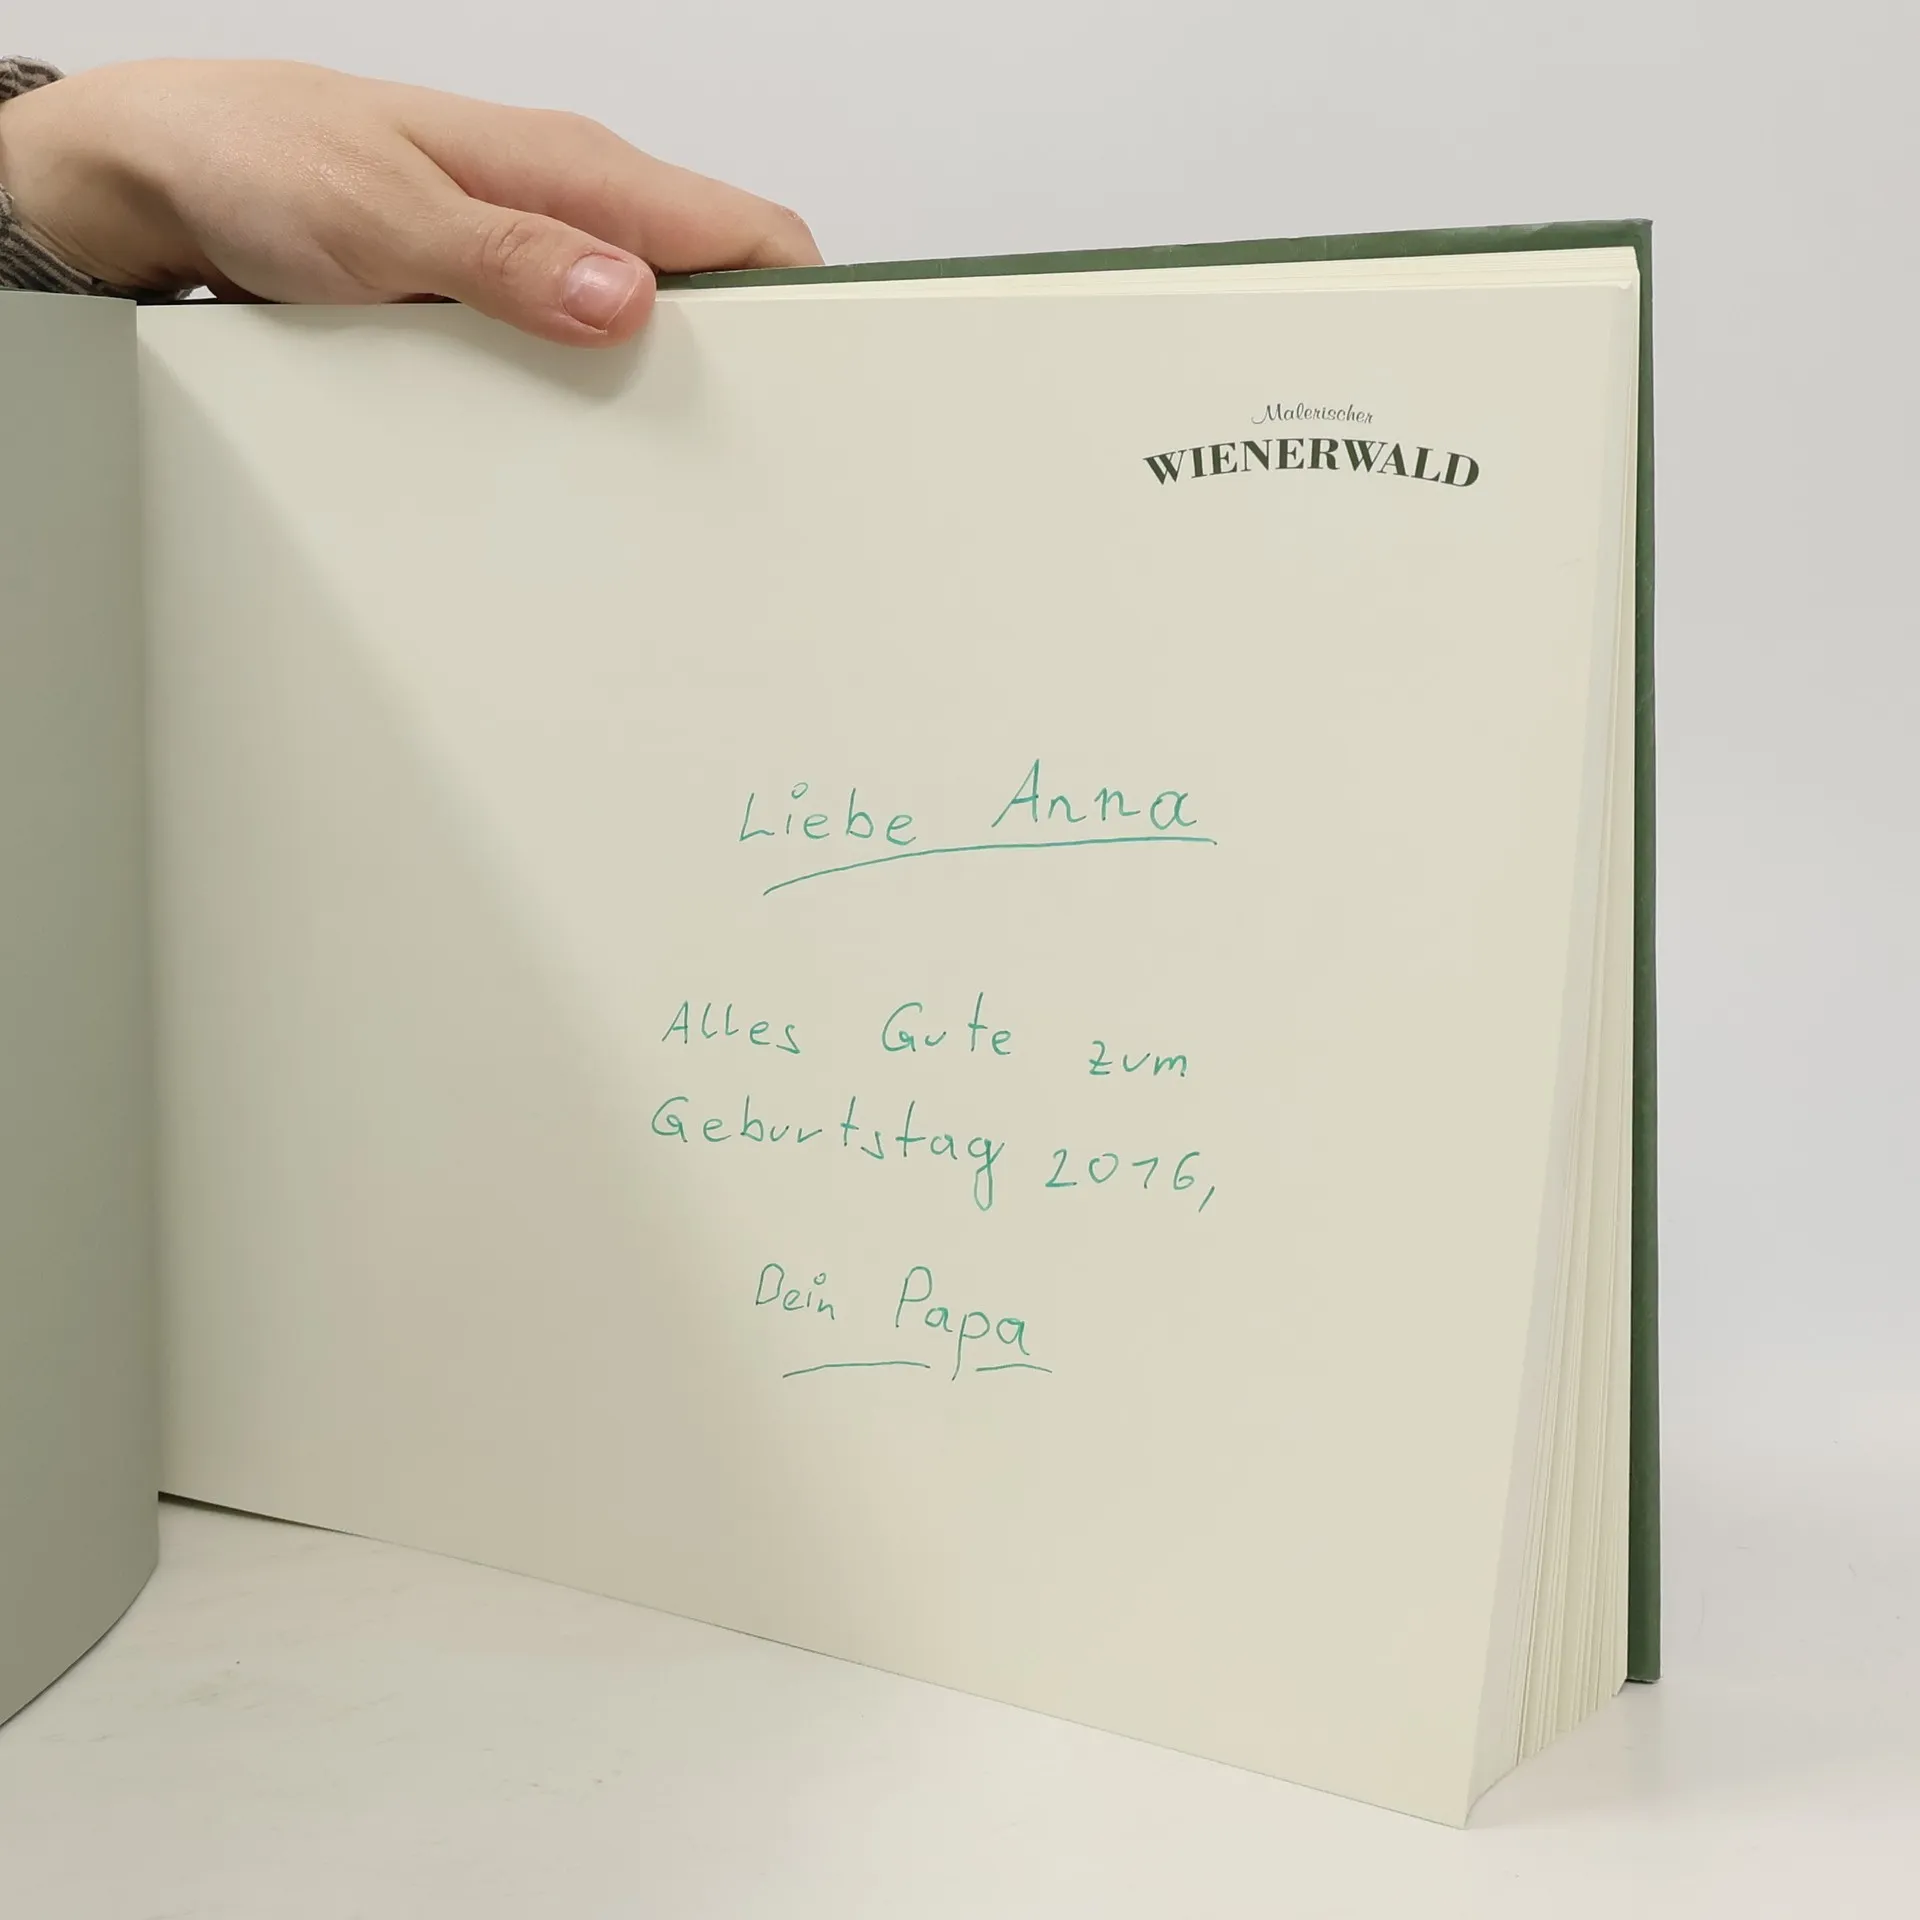 Malerischer
WIENERWALD
Liebe Anna
Alles Gute zum
Geburtstag 2016,
Dein Papa